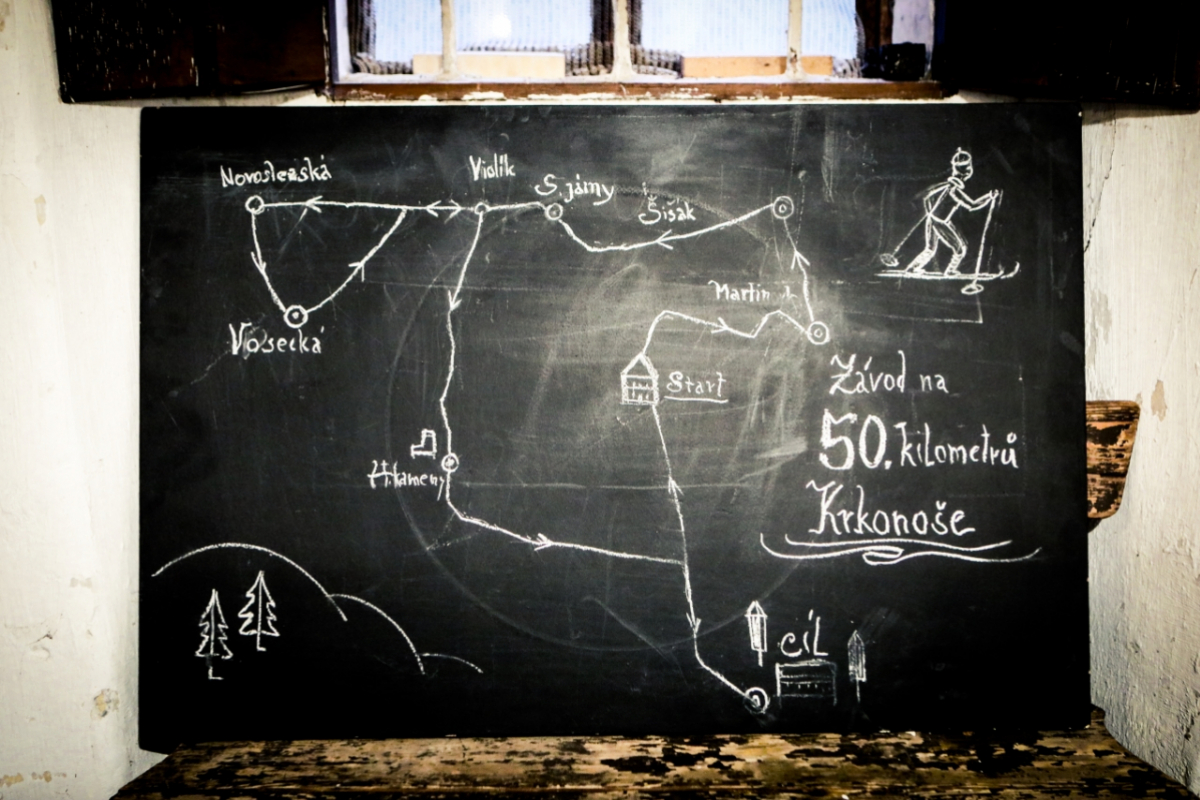 Novoslezská
Violík
S. jámy
Šišák
Vosecká
Start
H. kameny
Závod na
50. kilometrů
Krkonoše
cíl